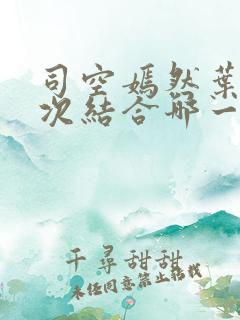 司空嫣然葉
次結合哪一
千尋甜甜
未经同意禁止转载